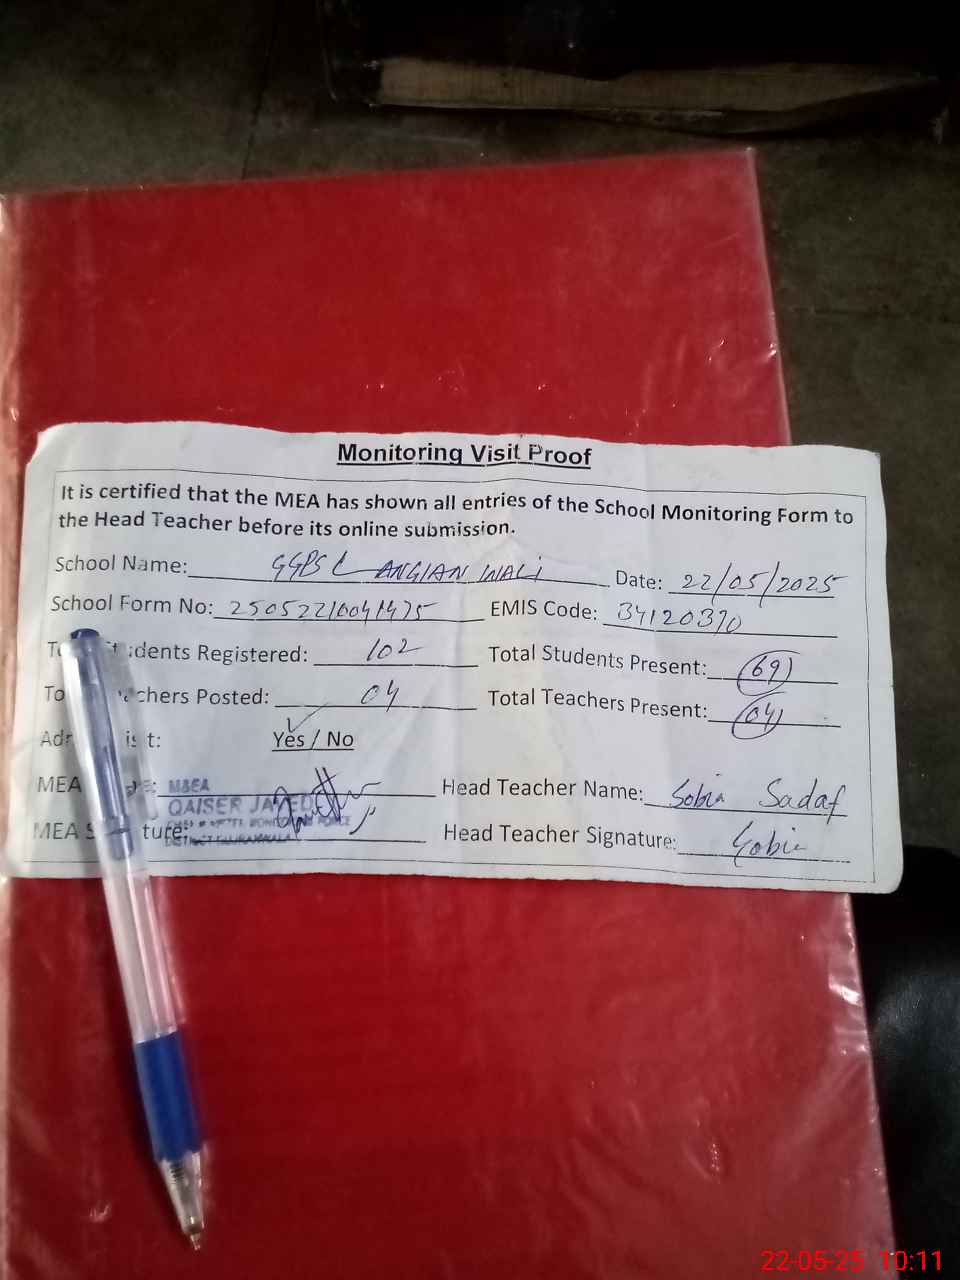 Monitoring Visit Proof
It is certified that the MEA has shown all entries of the School Monitoring Form to
the Head Teacher before its online submission.
School Name: GGPS LANGIAN WALI Date: 22/05/2025
School Form No: 25052210041475 EMIS Code: 34120370
dents Registered: 102 Total Students Present: 69
To chers Posted: 04 Total Teachers Present: 04
Yes / No
MEA M&EA Head Teacher Name: Sobia Sadaf
QAISER JAVED
MEA S ture: Head Teacher Signature: Sobia
DISTRICT GUJRANWALA
22-05-25 10:11